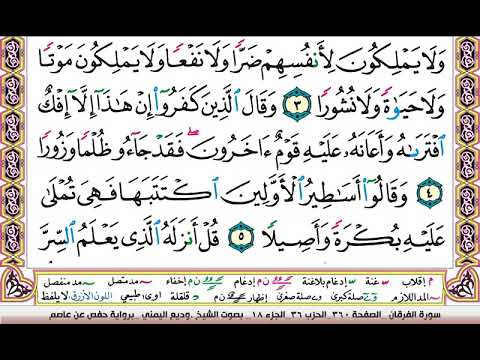 وَلَا يَمْلِكُونَ لِأَنفُسِهِمْ ضَرًّا وَلَا نَفْعًا وَلَا يَمْلِكُونَ مَوْتًا
وَلَا حَيَوٰةً وَلَا نُشُورًا ٣ وَقَالَ ٱلَّذِينَ كَفَرُوٓا۟ إِنْ هَـٰذَآ إِلَّآ إِفْكٌ
ٱفْتَرَىٰهُ وَأَعَانَهُۥ عَلَيْهِ قَوْمٌ ءَاخَرُونَ ۖ فَقَدْ جَآءُو ظُلْمًا وَزُورًا
٤ وَقَالُوٓا۟ أَسَـٰطِيرُ ٱلْأَوَّلِينَ ٱكْتَتَبَهَا فَهِىَ تُمْلَىٰ
عَلَيْهِ بُكْرَةً وَأَصِيلًا ٥ قُلْ أَنزَلَهُ ٱلَّذِى يَعْلَمُ ٱلسِّرَّ
م إقلاب غنة إدغام بلاغنة ن م إدغام ن م إخفاء مد متصل مد منفصل
المد اللازم صلة كبرى صلة صغرى إظهار ن م قلقلة اوى: طبيعي اللون الأزرق لا يلفظ
سورة الفرقان _ الصفحة ٣٦٠ _ الحزب ٣٦ _ الجزء ١٨ _ بصوت الشيخ _وديع اليمني _ برواية حفص عن عاصم